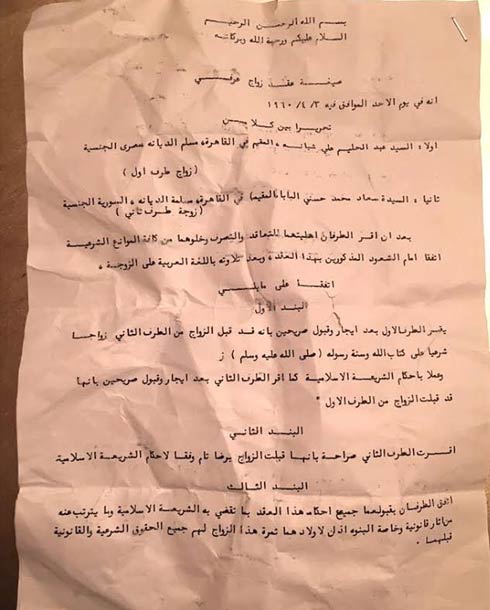 بسم الله الرحمن الرحيم
السلام عليكم ورحمة الله وبركاته
صيغة عقد زواج عرفي
انه في يوم الاحد الموافق فيه ٣/ ٤/ ١٩٦٠
تحريرا بين كلا من
اولا ء السيد عبد الحليم علي شبانه ء المقيم في القاهرة، مسلم الديانه مصرى الجنسية
( زواج طرف اول )
ثانيا ء السيدة سعاد محمد حسني البابا المقيم) في القاهرة، سلمة الديانه ء السورية الجنسية
( زوجة طرف ثاني )
بعد ان اقر الطرفان اهليتهما للتعاقد والتصرف وخلوهما من كافة الموانع الشرعية
اتفقا امام الشعود المذكورين بهذا العقد، وبعد تلاوته باللغة العربية على الزوجة ء
اتفقا على مايلي
البند الاول
يقر الطرف الاول بعد ايجار وقبول صريحين بانه قد قبل الزواج من الطرف الثاني زواجا
شرعيا على كتاب الله وسنة رسوله ( صلى الله عليه وسلم ) ز
وعملا باحكام الشريعة الاسلامية كما اقر الطرف الثاني بعد ايجار وقبول صريحين بانها
قد قبلت الزواج من الطرف الاول "
البند الثاني
اقرت الطرف الثاني صراحة بانها قبلت الزواج برضا تام وفقا لاحكام الشريعة الاسلامية
البند الثالث
اتفق الطرفان بقبولهما جميع احكام هذا العقد بما تقضي به الشريعة الاسلامية وما يترتب عنه
من اثار قانونية وخاصة البنوه اذ ان لاولاد هما ثمرة هذا الزواج لهم جميع الحقوق الشرعية والقانونية
قبلهما .